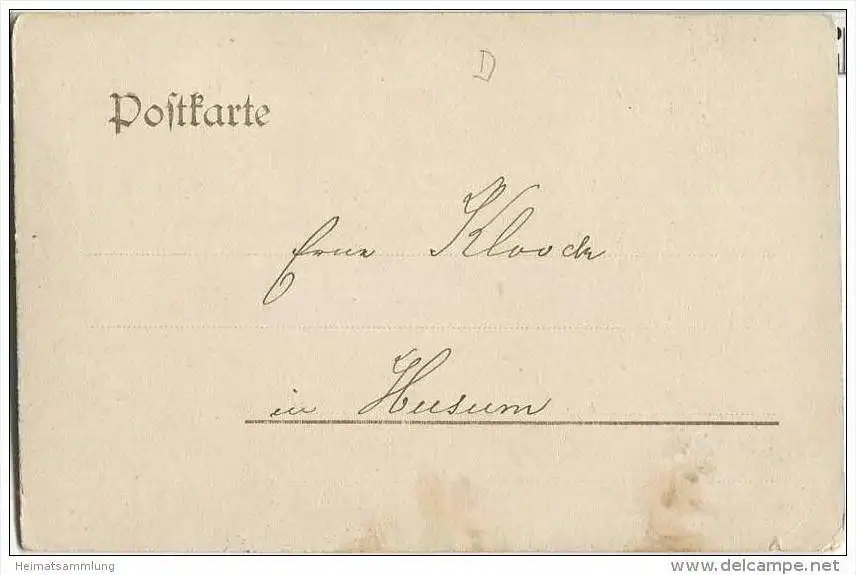 D
Postkarte
Erna Kloock
in Husum
Heimatsammlung
www.delcampe.net